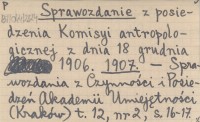 P Sprawozdanie z posie-
dzenia Komisyi antropolo-
gicznej z dnia 18 grudnia
1906. 1907. — Spra-
wozdania z Czynności i Posie-
dzeń Akademii Umiejętności
(Kraków) t. 12, nr 2, s. 16-17.